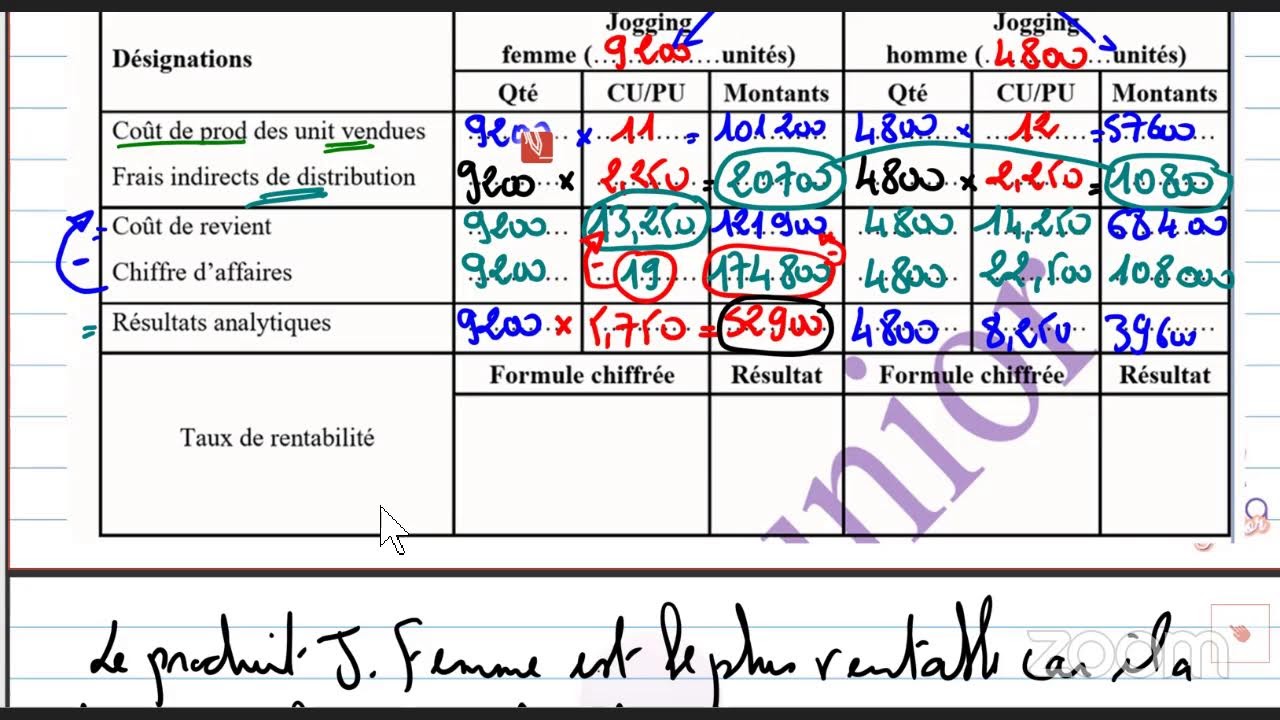 Jogging Jogging
Désignations femme (…9200…unités) homme (…4800…unités)
Qté CU/PU Montants Qté CU/PU Montants
Coût de prod des unit vendues 9200 × 11 = 101 200 4800 × 12 = 57600
Frais indirects de distribution 9200 × 2,250 = 20700 4800 × 2,250 = 10800
Coût de revient 9200 13,250 121.900 4800 14,250 68400
Chiffre d’affaires 9200 19 174 800 4800 22,500 108000
Résultats analytiques 9200 × 5,750 = 52900 4800 8,250 39600
Formule chiffrée Résultat Formule chiffrée Résultat
Taux de rentabilité
nior
Le produit J. Femme est le plus rentable car il a
zoom